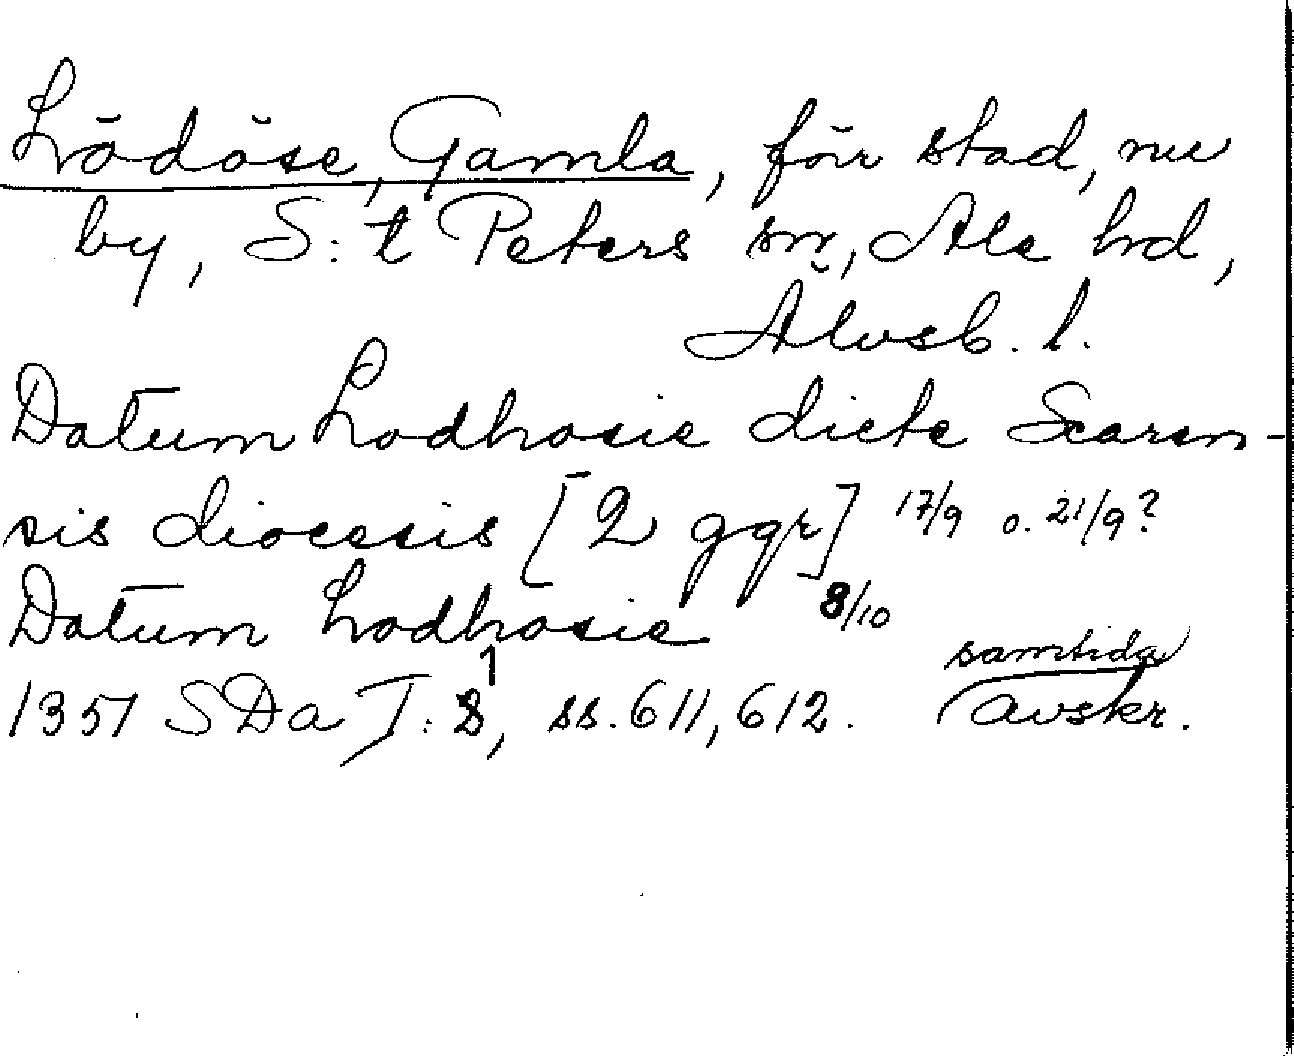 Lödöse, Gamla, förr stad, nu
by, S:t Peters sn, Ale hd,
Älvsb. l.
Datum Lodhosie dicte Scaren-
sis diocesis [2 ggr] 17/9 o. 21/9?
Datum Lodhosie 8/10
samtida
1357 SDa I: 1, ss. 611, 612. avskr.